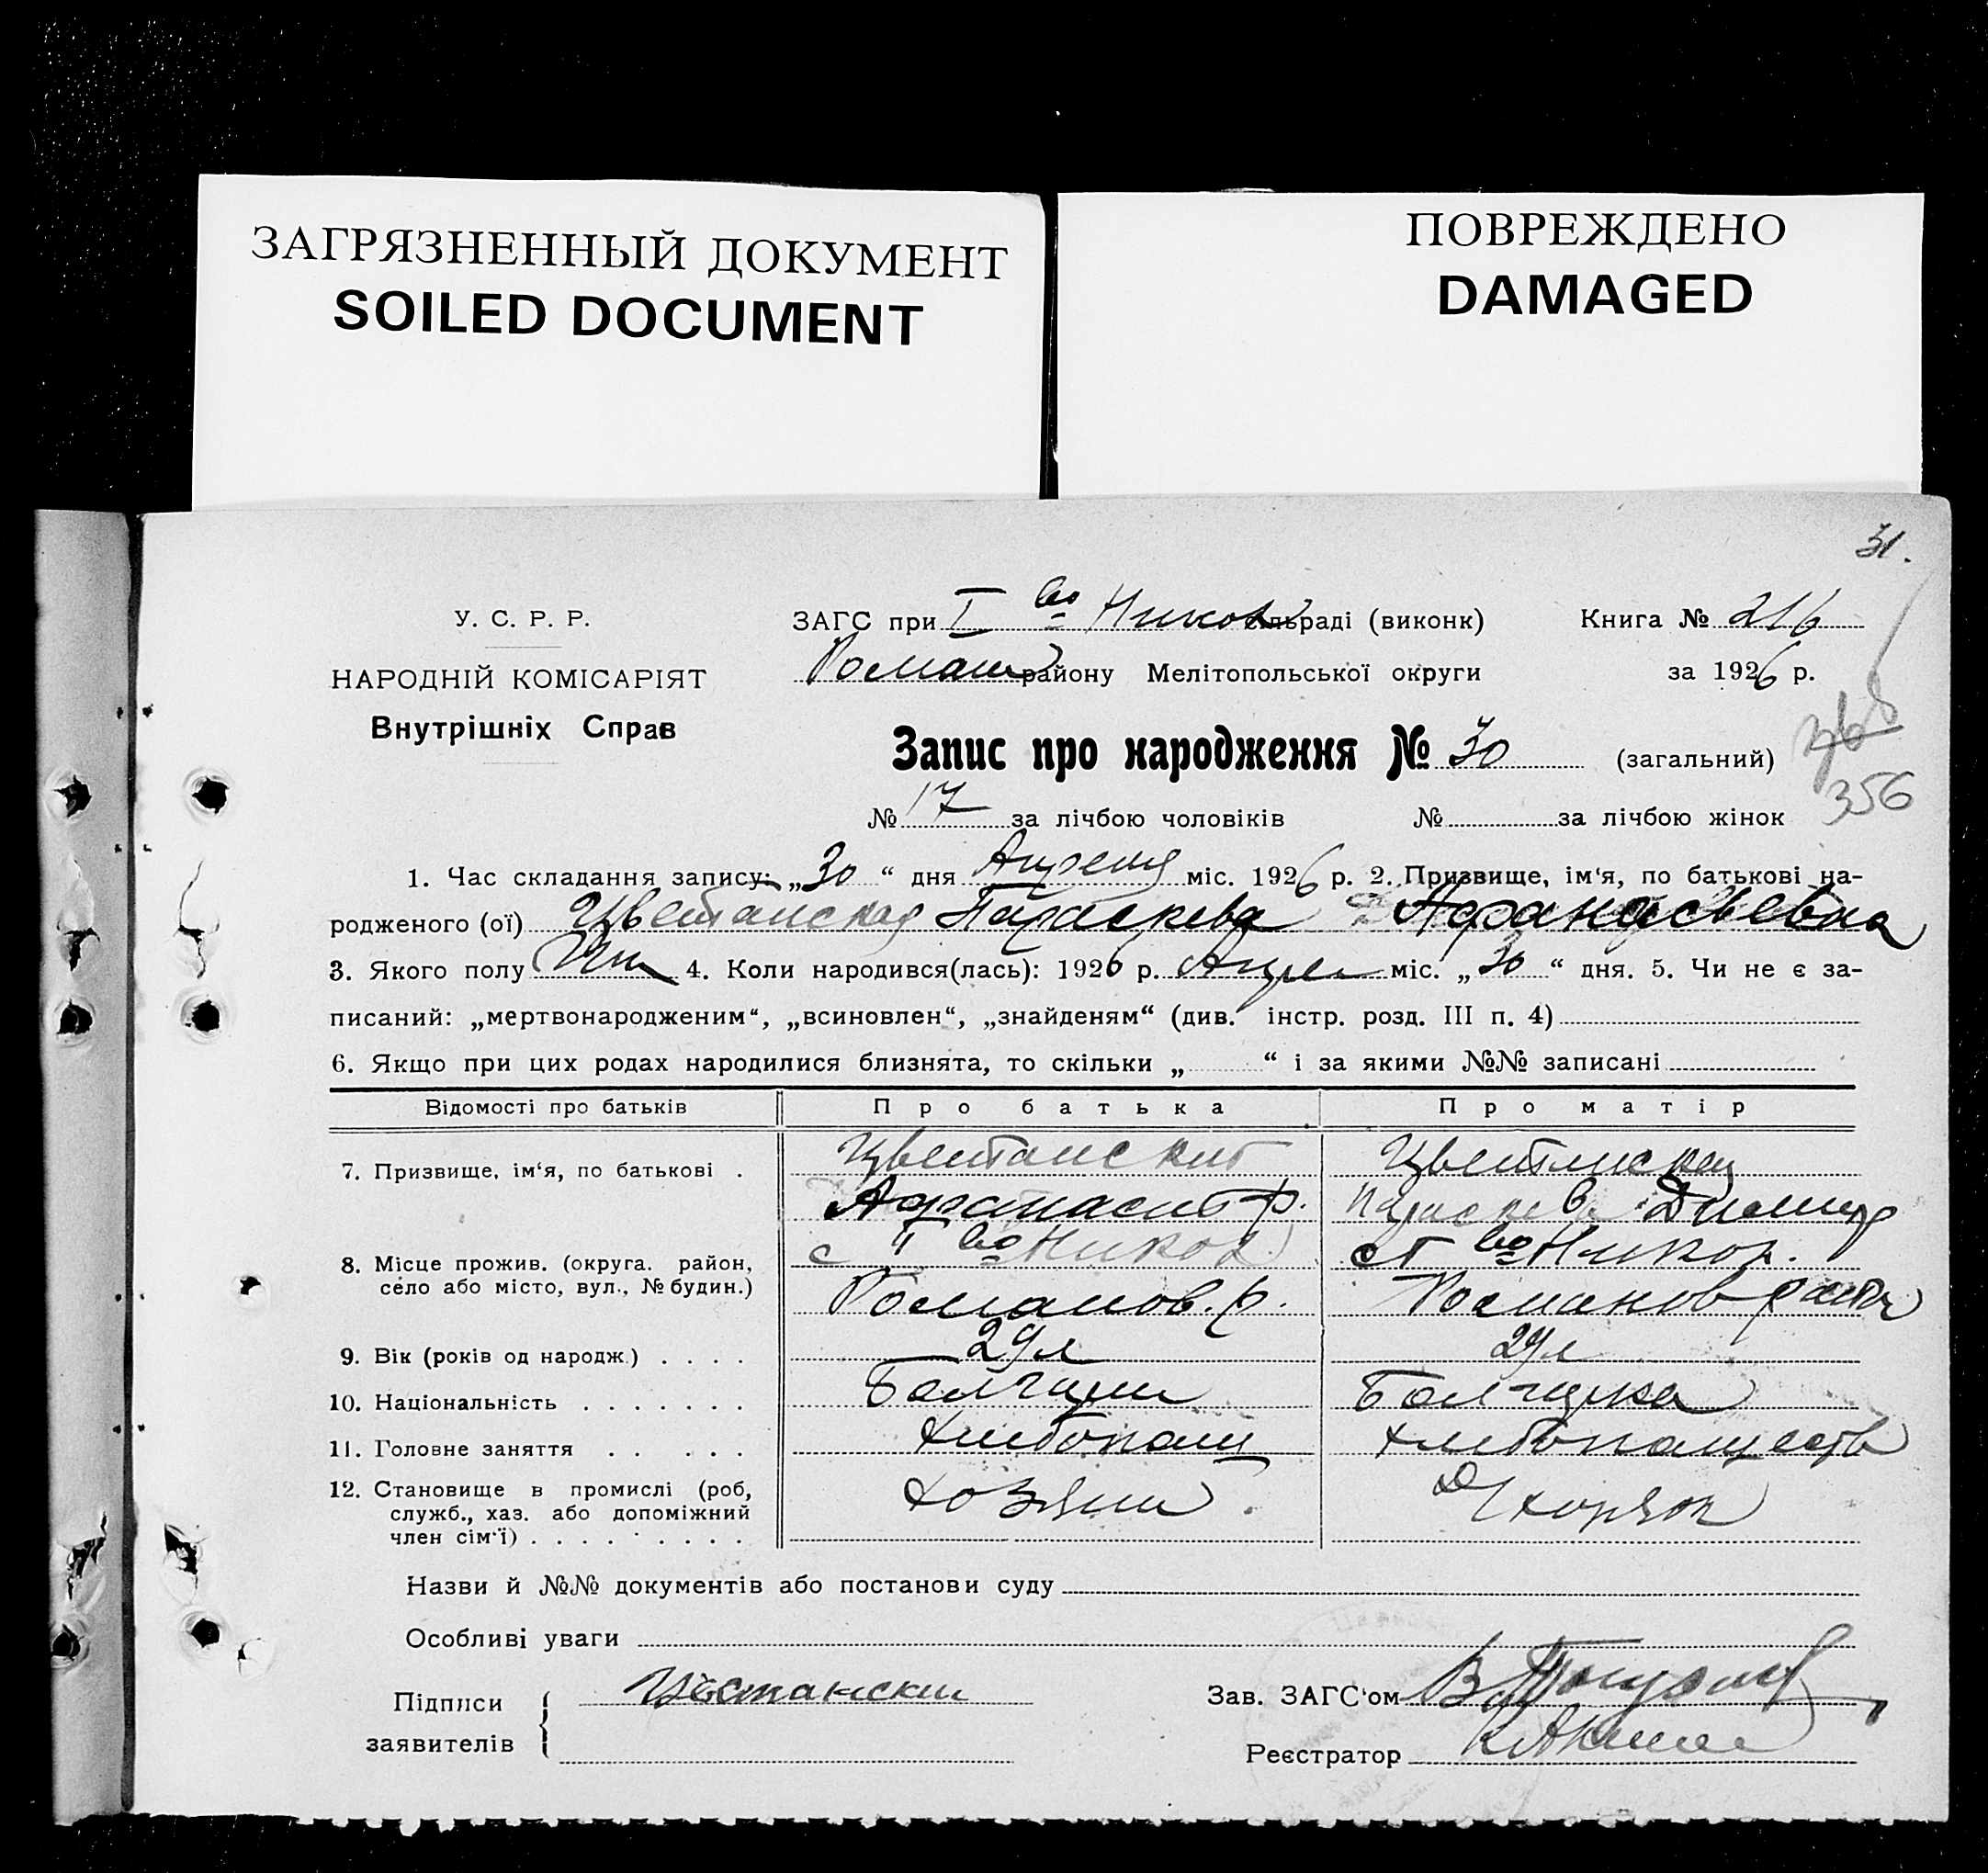 ЗАГРЯЗНЕННЫЙ ДОКУМЕНТ
SOILED DOCUMENT
ПОВРЕЖДЕНО
DAMAGED
31.
У. С. Р. Р.
НАРОДНІЙ КОМІСАРІЯТ
Внутрішніх Справ
ЗАГС при I во Никол раді (виконк) Книга № 216
Роман району Мелітопольської округи за 1926 р.
Запис про народження № 30 (загальний)
356
№ 17 за лічбою чоловіків № за лічбою жінок
1. Час складання запису: „30“ дня Апреля міс. 1926 р. 2. Призвище, ім'я, по батькові на-
родженого (ої) Цветанская Параскева Афанасьевна
3. Якого полу 4. Коли народився(лась): 1926 р. Апрел міс. „30“ дня. 5. Чи не є за-
писаний: „мертвонародженим“, „всиновлен“, „знайденям“ (див. інстр. розд. III п. 4)
6. Якщо при цих родах народилися близнята, то скільки „ “ і за якими №№ записані
Відомості про батьків Про батька Про матір
7. Призвище, ім'я, по батькові . Цветанский Цветанская
Афанасий Параскева Димитр
8. Місце прожив. (округа. район, с I во Никол. с I во Никол.
село або місто, вул., № будин.) Романов. р. Романов района
9. Вік (років од народж.) . . . . 29 л 29 л
10. Національність . . . . . . . Болгарин Болгарка
11. Головне заняття . . . . . . Хлебопаш Хлебопашеств
12. Становище в промислі (роб, Хозяин
служб., хаз. або допоміжний
член сім'ї) . . . . . . . .
Назви й №№ документів або постанови суду
Особливі уваги
Підписи Цветанский Зав. ЗАГС'ом
заявителів Реєстратор